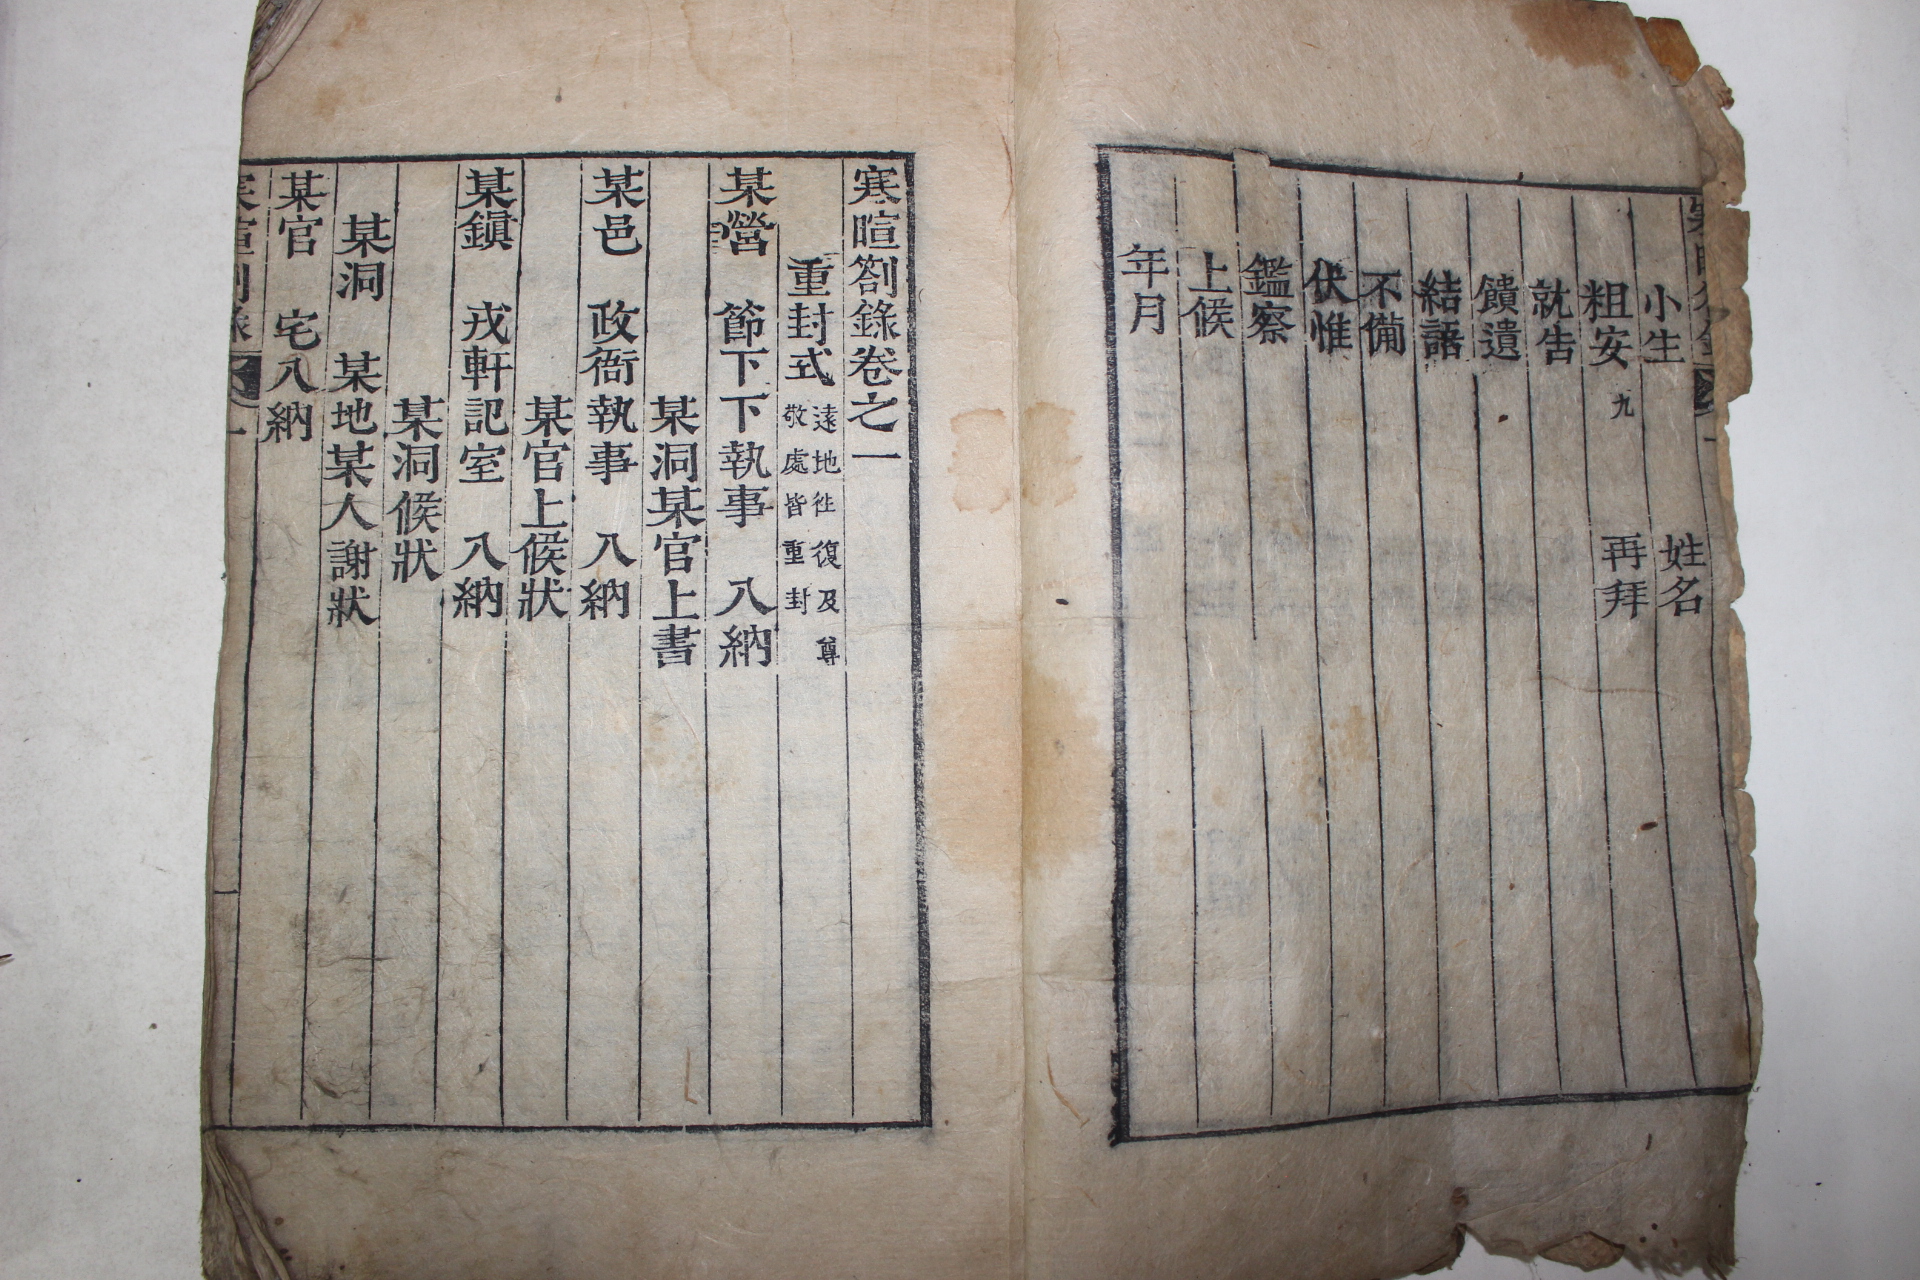 小生 姓名
粗安 九 再拜
就告
饋遺
結語
不備
伏惟
鑑察
上候
年月
寒暄劄錄卷之一
重封式 遠地徃復及尊
敬處皆重封
某營 節下下執事 入納
某洞某官上書
某邑 政衙執事 入納
某官上候狀
某鎭 戎軒記室 入納
某洞候狀
某洞 某地某人謝狀
某官 宅入納
寒暄劄錄 一